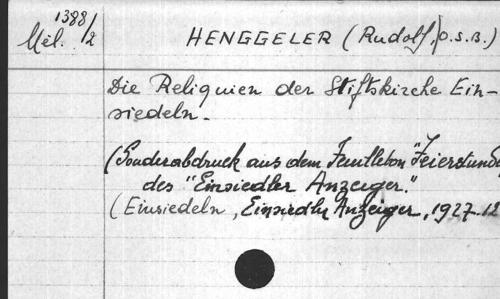 Mél. 1388/2
HENGGELER (Rudolf, O.S.B.)
Die Reliquien der Stiftskirche Ein-
siedeln.
(Sonderabdruck aus dem Feuilleton "Feierstunde
des "Einsiedler Anzeiger."
(Einsiedeln, Einsiedler Anzeiger, 1927. 12